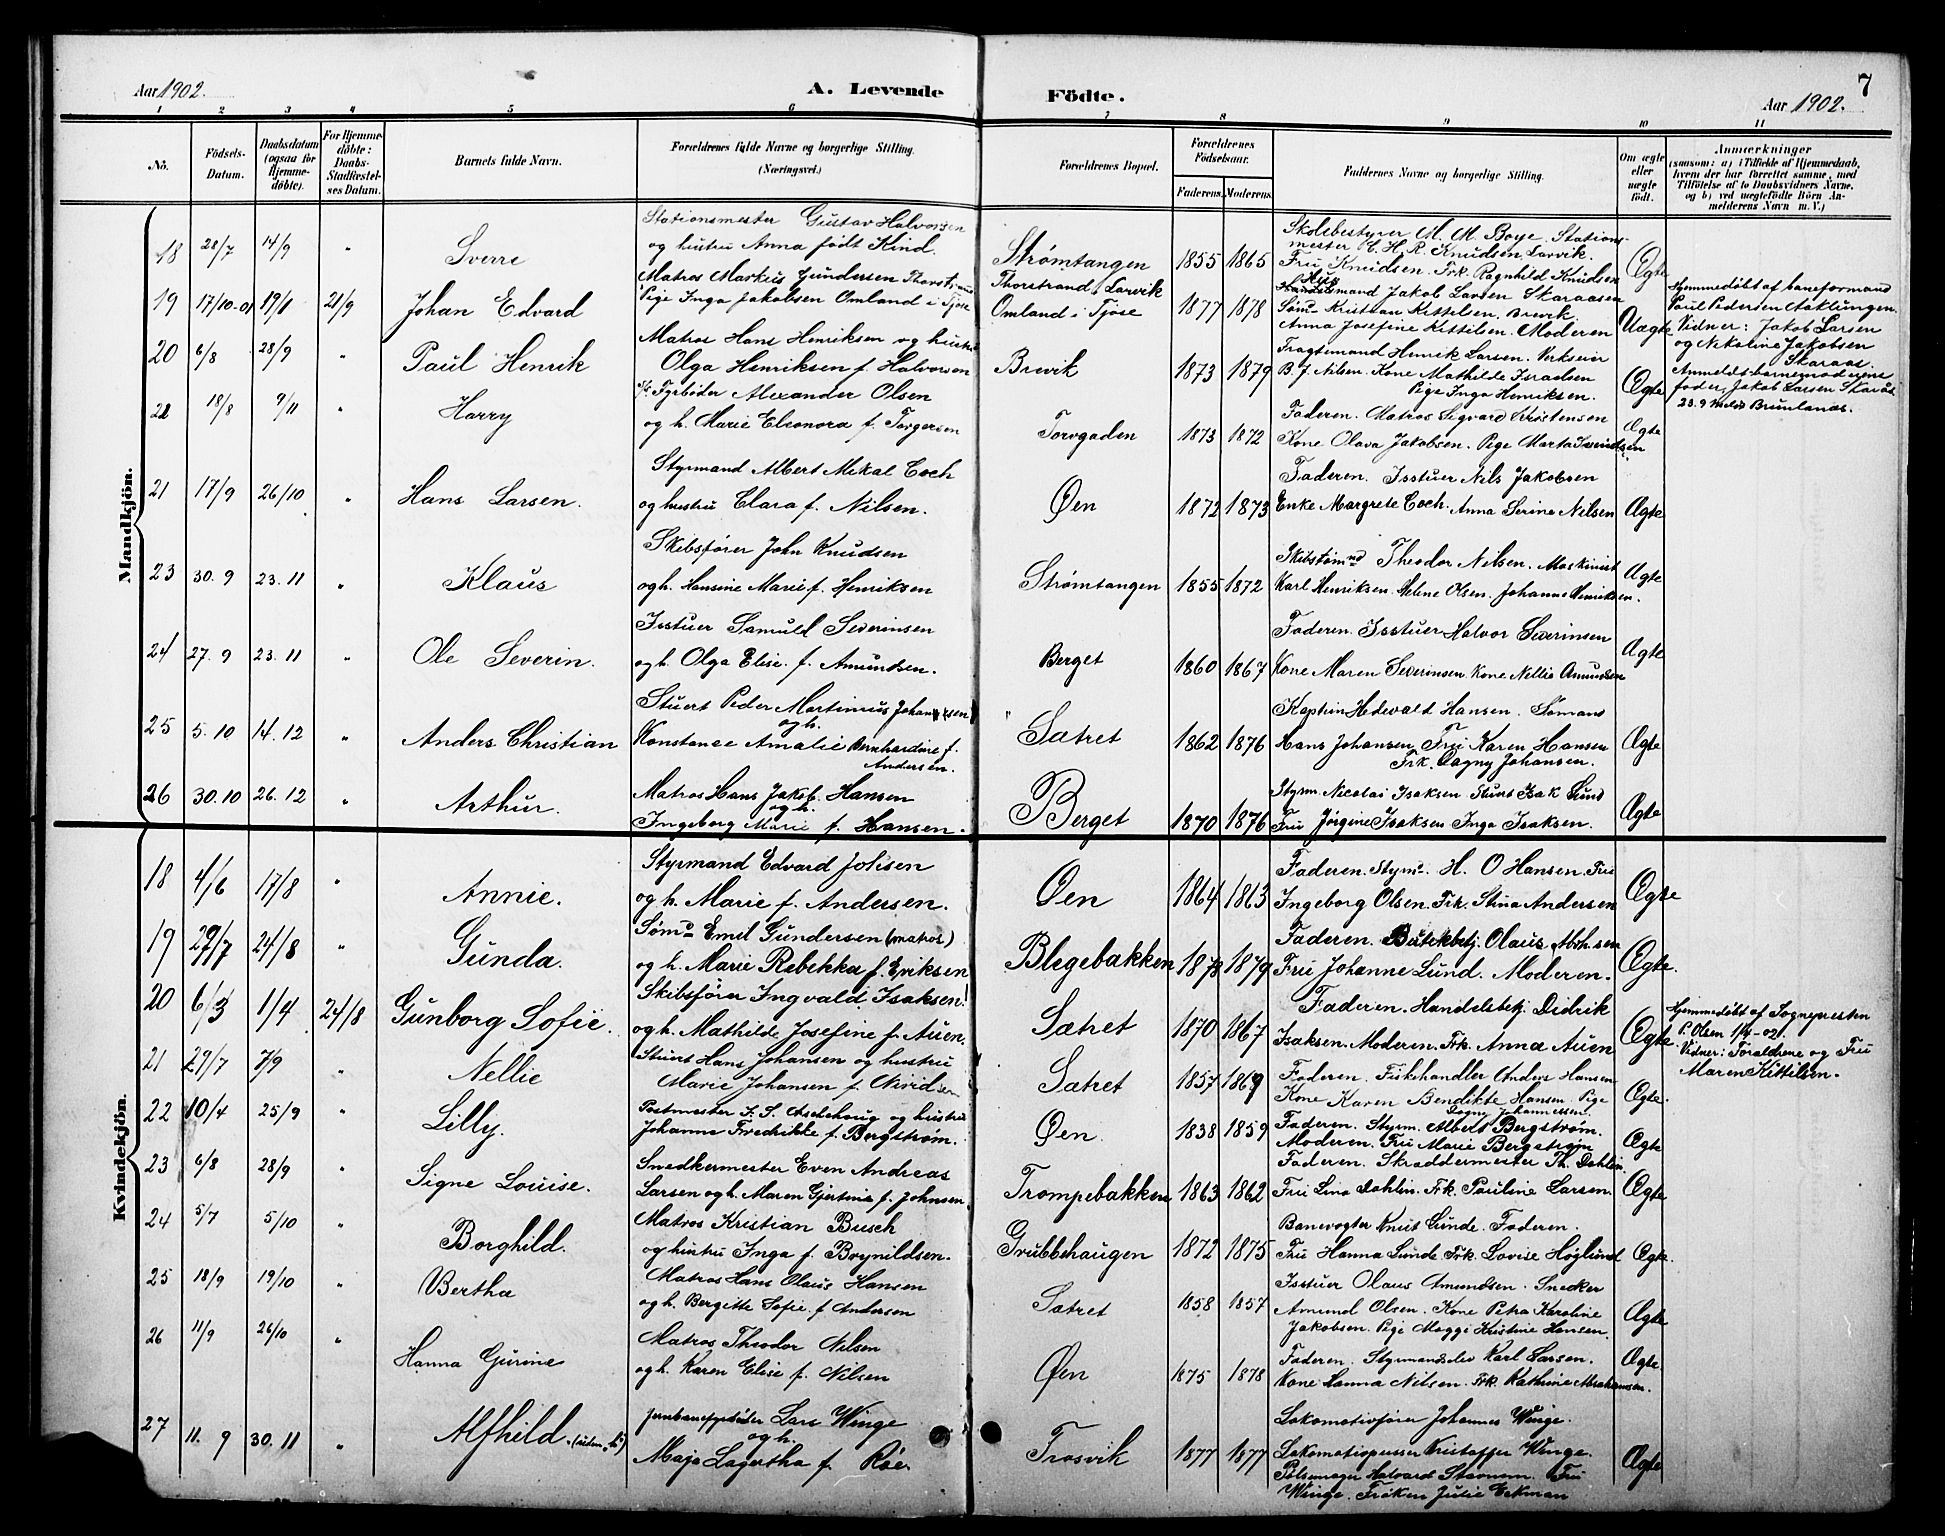 Aar 1902.
A. Levende Födte.
7
Aar 1902.
1 2 3 4 5 6 7 8 9 10 11
No.
Födsels-Datum.
Daabsdatum (ogsaa for Hjemmedöbte).
For Hjemmedöbte: Daabs-Stadfæstelses Datum.
Barnets fulde Navn.
Forældrenes fulde Navne og borgerlige Stilling. (Næringsvei.)
Forældrenes Bopæl.
Forældrenes Födselsaar.
Faderens. Moderens.
Faddernes Navne og borgerlige Stilling.
Om ægte eller uægte födt.
Anmærkninger
(saasom: a) i Tilfælde af Hjemmedaab, hvem der har forrettet samme, med Tilföielse af to Daabsvidners Navne, og b) ved uægtefödte Börn Anmelderens Navn m. V.)
Mandkjön.
18 28/7 14/9 " Sverre
Stationsmester Gustav Halvorsen
og hustru Anna født Kind.
Strømtangen 1855 1865
Skolebestyrer M. M. Boye. Stations-
mester C. H. R. Knudsen Larvik.
Fru Knudsen. Frk. Ragnhild Knudsen
Ægte
19 17/10-01 19/1 21/9 Johan Edvard
Matros Markus Gundersen Thorstrand
Pige Inga Jakobsen Omland i Tjøse
Thorstrand, Larvik
Omland i Tjøse 1877 1878
Husmand Jakob Larsen Skaraasen
Søm. Kristian Kittilsen. Brevik.
Anna Josefine Kittilsen. Moderen
Uægte
Hjemmedøbt af baneformand
Paul Pedersen Aaklungen.
Vidner: Jakob Larsen
og Nikoline Jakobsen
Skaraas.
Anmeldt barnemoderens
fader, Jakob Larsen Skaraas
23.9 Brunlanæs.
20 6/8 28/9 " Paul Henrik
Matros Hans Henriksen og hustru
Olga Henriksen f. Halvorsen
Brevik 1873 1879
Fragtemand Henrik Larsen. Verkseier
B. J. Nilsen. Kone Mathilde Israelsen
Pige Inga Henriksen.
Ægte
21 18/8 9/11 " Harry
Fyrbøder Alexander Olsen
og h. Marie Eleonora f. Torgersen
Torvgaden 1873 1872
Faderen. Matros Sigvard Kristensen
Kone Olava Jakobsen. Pige Marta
Ægte
21 17/9 26/10 " Hans Larsen.
Styrmand Albert Mikal Coch
og hustru Clara f. Nilsen.
Øen 1872 1873
Faderen. Isstuer Nils Jakobsen
Enke Margrete Coch. Anna Serine Nilsen
Ægte
23 30.9 23.11 " Klaus
Skibsfører John Knudsen
og h. Hansine Marie f. Henriksen
Strømtangen 1855 1872
Skibstømmd Theodor Nilsen. Maskinist
Karl Henriksen. Helene Olsen. Johanne Henriksen.
Ægte
24 27.9 23.11 " Ole Severin.
Isstuer Samuel Severinsen
og h. Olga Elise. f. Amundsen.
Berget 1860 1867
Faderen. Isstuer Halvor Severinsen
Kone Maren Severinsen. Kone Nellie Amundsen
Ægte
25 5.10 14.12 " Anders Christian
Stuert Peder Martinius Johannesen
og h.
Konstance Amalie Bernhardine f.
Andersen.
Sætret 1862 1876
Kaptein Hansen. Sømand
Hans Johansen. Fru Karen Hansen
Frk. Dagny Johansen.
Ægte
26 30.10 26.12 " Arthur.
Matros Hans Jakob Hansen
og h.
Ingeborg Marie f. Hansen.
Berget 1870 1876
Styrm. Nicolai Isaksen. Stuert Isak Lund
Fru Jørgine Isaksen Inga Isaksen.
Ægte
Kvindekjön.
18 4/6 17/8 " Annie.
Styrmand Edvard Johsen
og h. Marie f. Andersen.
Øen 1864 1863
Faderen. Styrm. H. O Hansen. Fru
Ingeborg Olsen. Frk. Stina Andersen
Ægte
19 29/7 24/8 " Gunda.
Søm. Emil Gundersen (matros)
og h. Marie Rebekka f. Eriksen
Blegebakken 1878 1879
Faderen. Butikbetj. Olaus
Fru Johanne Lund. Moderen.
Ægte.
20 6/3 1/4 24/8 Gunborg Sofie.
Skibsfører Ingvald Isaksen!
og h. Mathilde Josefine f. Auen.
Sætret 1870 1867
Faderen. Handelsbetj. Didrik
Isaksen. Moderen. Frk. Anna Auen
Ægte.
Hjemmedøbt af Sognepresten
P. Olsen 1/4-02.
Vidner: Forældrene og Fru
Maren Kittilsen.
21 29/7 7/9 " Nellie
Stuert Hans Johansen og hustru
Marie Johansen f. Arvidsen
Sætret 1857 1869
Faderen. Fiskehandler Anders Hansen
Kone Karen Bendikte Hansen. Pige
Dagny Johannessen.
Ægte.
22 10/4 25/9 " Lilly.
Postmester Aschehoug og hustru
Johanne Fredrikke f. Bergstrøm.
Øen. 1838 1859
Faderen. Styrm. Albert Bergstrøm.
Moderen. Fru Marie Bergstrøm
Ægte
23 6/8 28/9 " Signe Louise.
Snedkermester Even Andreas
Larsen og h. Maren Gjertine f. Johnsen.
Trompebakken 1863 1862
Faderen. Skraddermester Th. Dahlin.
Fru Lina Dahlin. Frk. Pauline Larsen.
Ægte
24 5/7 5/10 " Borghild.
Matros Kristian Busch
og hustru Inga f. Brynildsen.
Grubbehaugen 1872 1875
Banevogter Knut Lunde. Faderen.
Fru Hanna Lunde Frk. Lovise Høglund
Ægte.
25 18/9 19/10 " Bertha
Matros Hans Olaus Hansen
og h. Bergitte Sofie. f. Andersen
Sætret 1858 1857
Isstuer Olaus Amundsen. Snedker
Amund Olsen. Kone Petra Karoline
Jakobsen. Pige Maggi Kristine Hansen.
Ægte
26 11/9 26/10 " Hanna Gurine
Matros Theodor Nilsen
og h. Karen Elise f. Nilsen
Øen 1875 1878
Faderen. Styrmandselev Karl Larsen.
Kone Hanna Nilsen. Frk. Kathrine Abrahamsen.
Ægte
27 11.9 30.11 " Alfhild. (uden "h")
Lars Winge
og h.
Maja Lagertha f. Røe
Trosvik 1877 1877
Lokomotivfører Johannes Winge.
Lokomotivpusser Kristoffer Winge.
Pølsemager Halvard Stavnem. Fru
Winge. Frøken Julie Eckman
Ægte